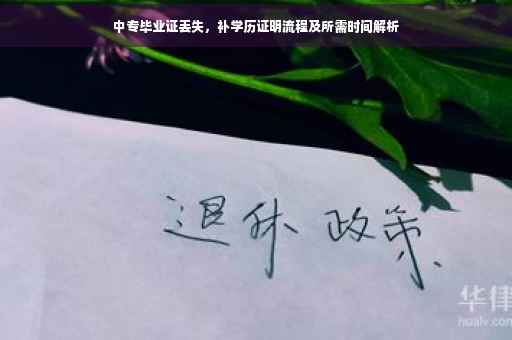 中专毕业证丢失，补学历证明流程及所需时间解析
退休 政策
华律
hualv.com